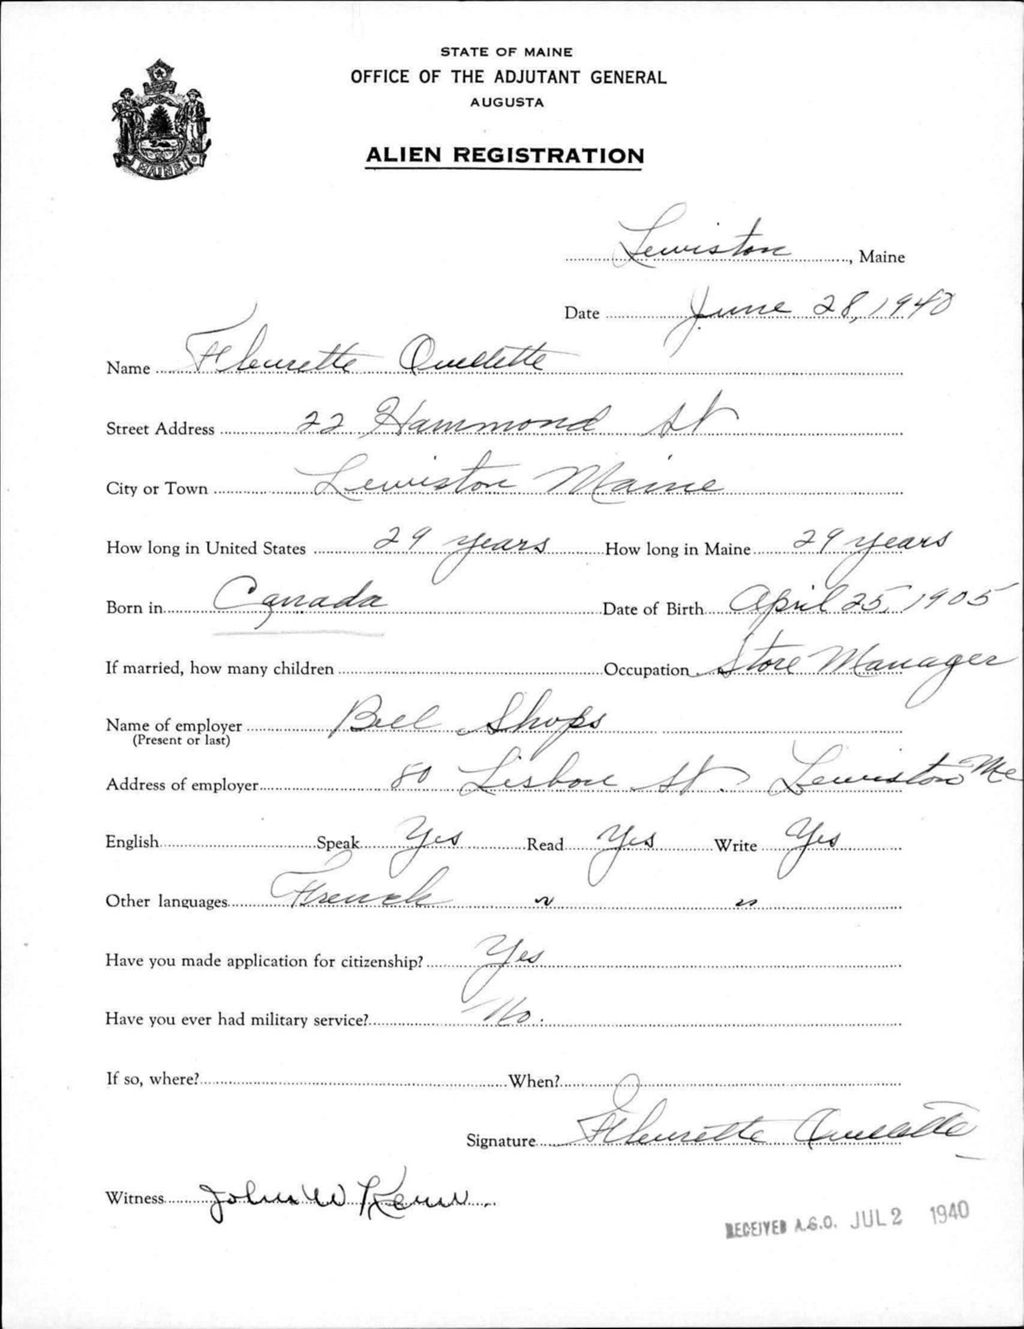 STATE OF MAINE
OFFICE OF THE ADJUTANT GENERAL
AUGUSTA
ALIEN REGISTRATION
MAINE
Lewiston, Maine
Date June 28, 1940
Name Fleurette Ouellette
Street Address 22 Hammond St
City or Town Lewiston Maine
How long in United States 29 years How long in Maine 29 years
Born in Canada Date of Birth April 25, 1905
If married, how many children Occupation Store Manager
Name of employer Bell Shops
(Present or last)
Address of employer 80 Lisbon St. Lewiston Me
English Speak Yes Read Yes Write Yes
Other languages French " "
Have you made application for citizenship? Yes
Have you ever had military service? No.
If so, where? When?
Signature Fleurette Ouellette
Witness John W
RECEIVED A.G.O. JUL 2 1940